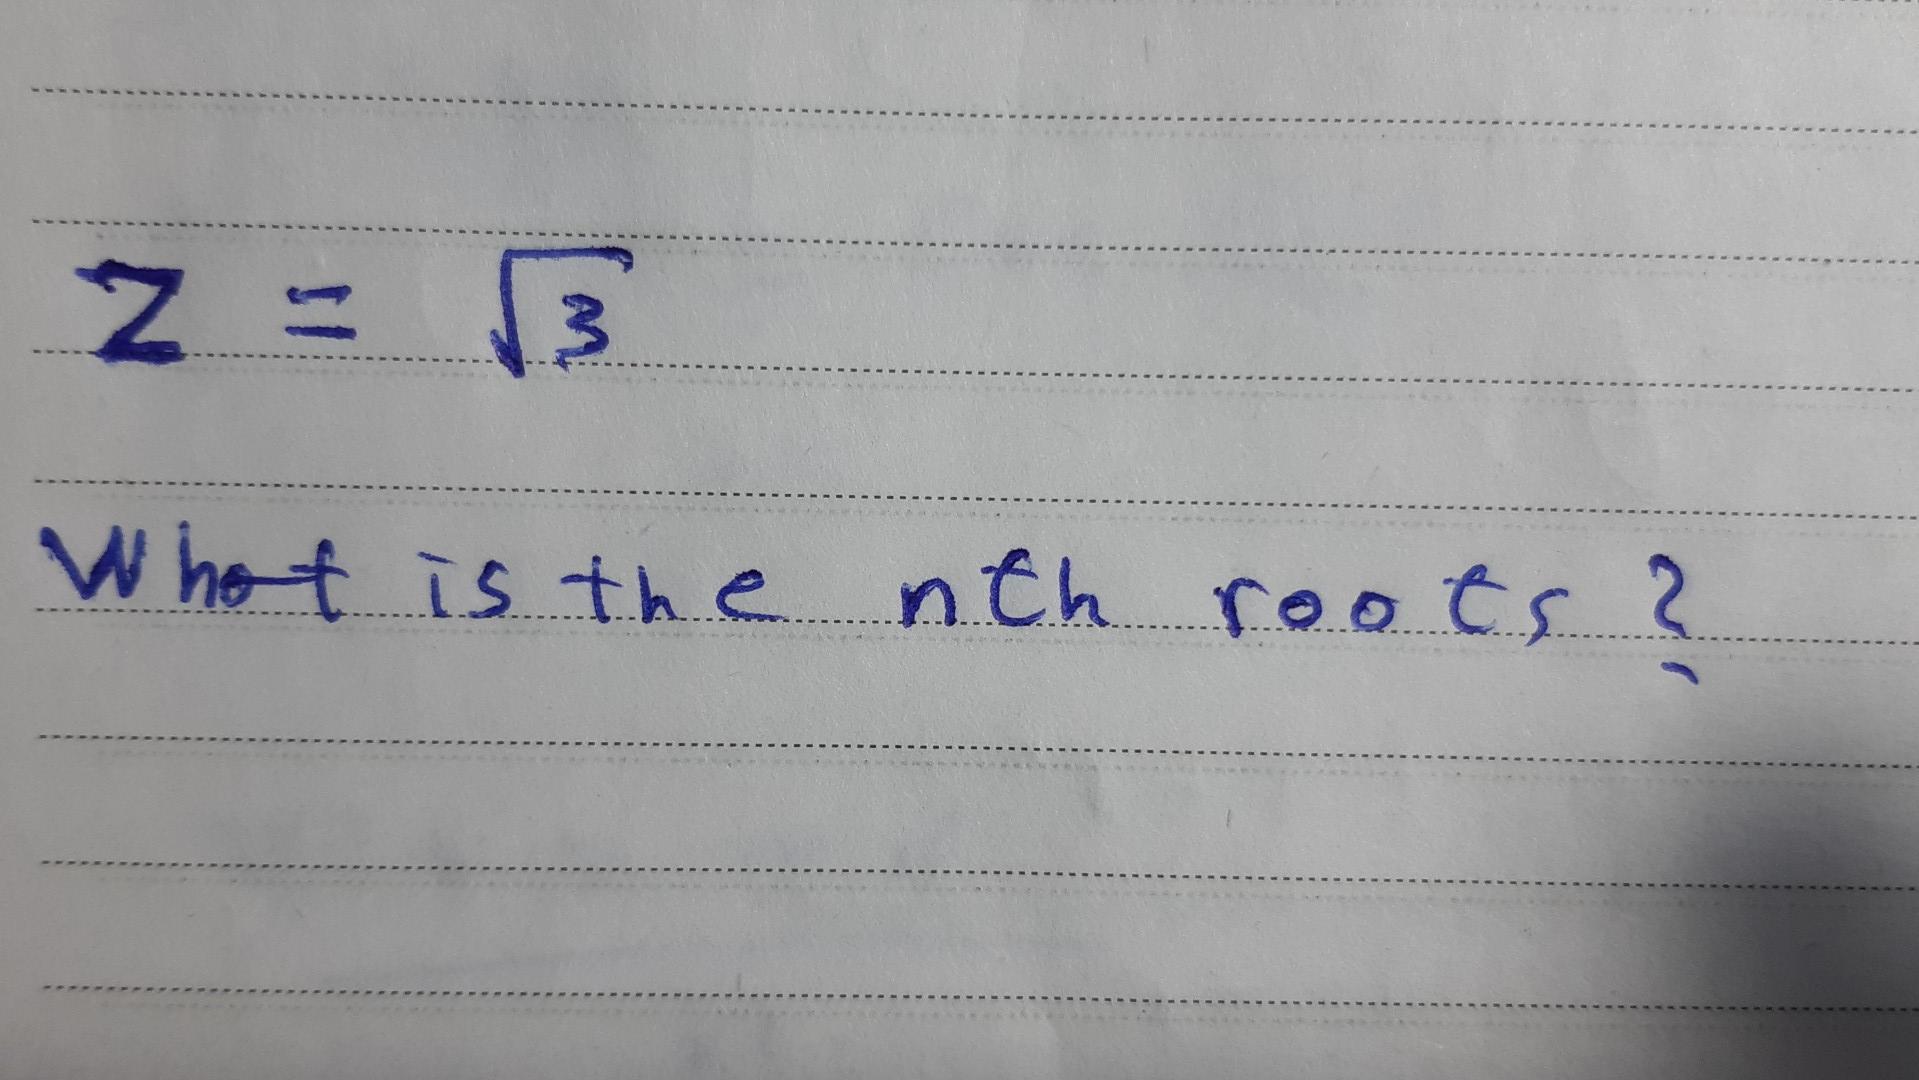 Z = √3
What is the nth roots?